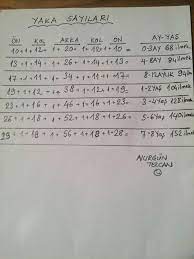 YAKA SAYILARI
ÖN KOL ARKA KOL ÖN AY-YAŞ
10+1+12+1+20+1+12+1+10 = 0-3AY 68 ilmek
13+1+14+1+26+1+14+1+13 = 4-8AY 84 ilmek
17+1+11+1+34+1+11+1+17 = 8-12AYLIK 94 ilm
19+1+12+1+38+1+12+1+19 = 1-2YAŞ 104 ilmek
23+1+16+1+46+1+16+1+23 = 3-4YAŞ 128 ilmek
26+1+18+1+52+1+18+1+26 = 5-6YAŞ 140 ilmek
+1+18+1+56+1+18+1+28 = 7-8YAŞ 152 ilmek
NURGÜN
TERCAN